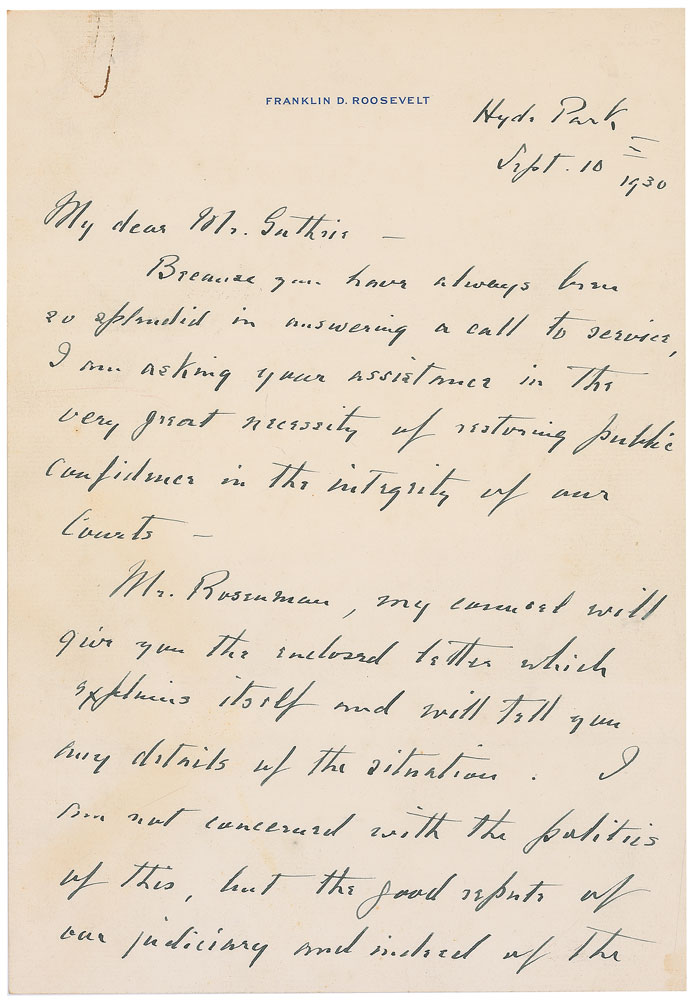 FRANKLIN D. ROOSEVELT
Hyde Park
Sept. 10
1930
My dear Mr. Guthrie —
Because you have always been
so splendid in answering a call to service,
I am asking your assistance in the
very great necessity of restoring public
confidence in the integrity of our
Courts —
Mr. Rosenman, my counsel will
give you the enclosed letter which
explains itself and will tell you
any details of the situation. I
am not concerned with the politics
of this, but the good repute of
our judiciary and indeed of the